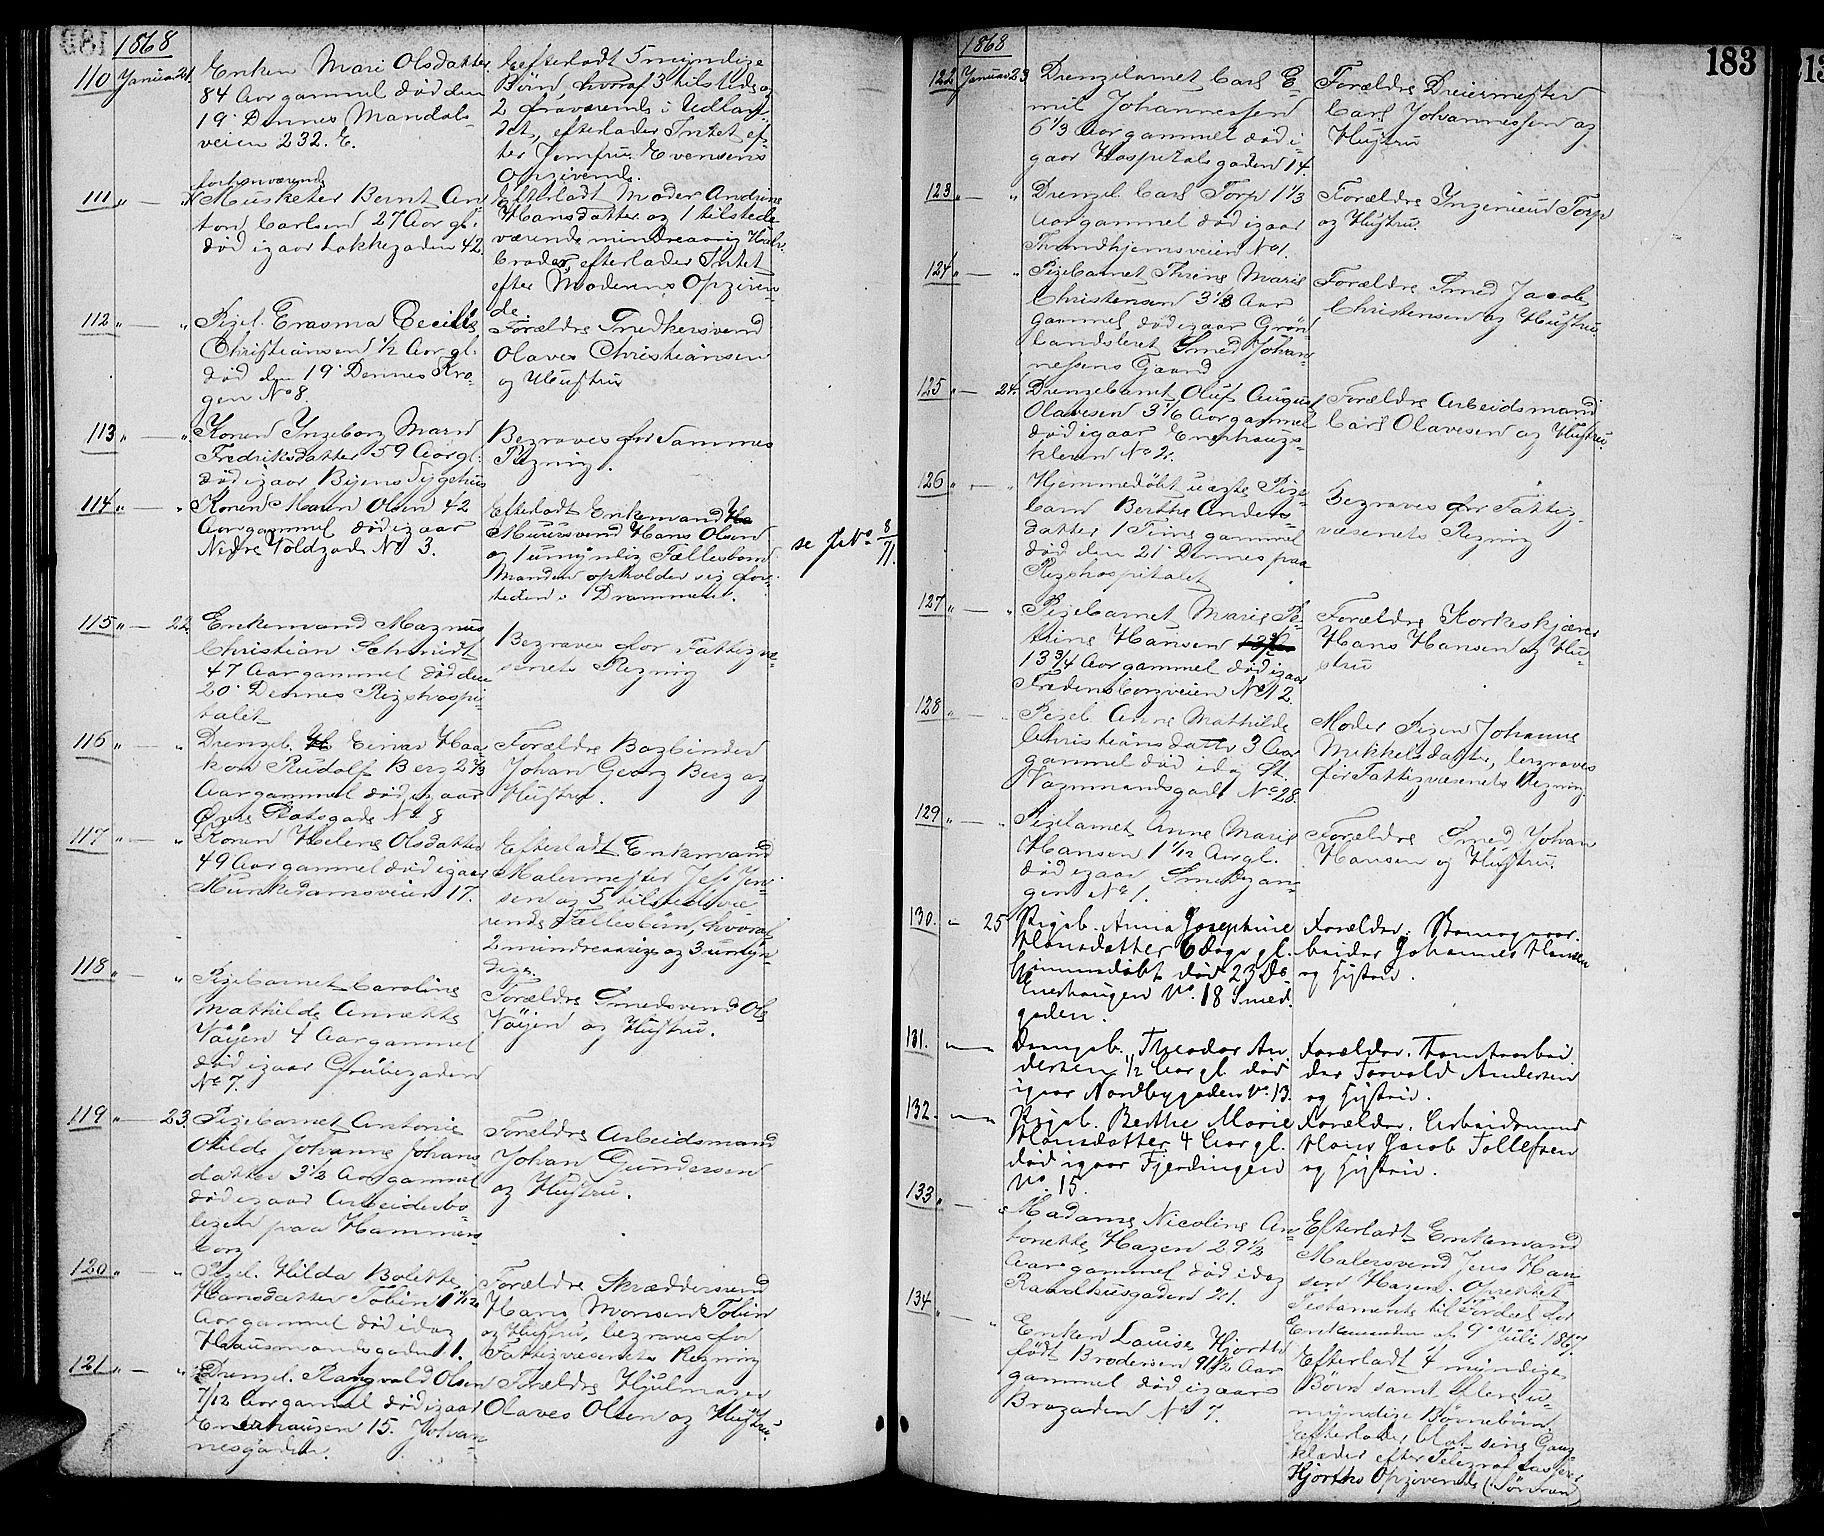 1868
110 Januar 21. Enken Mari Olsdatter
84 Aar gammel død den
19' Dennes Mandals-
veien 232. E.
Efterladt 5 myndige
Børn, hvoraf 3 tilstede og
2 fraværende i Udlan-
det, efterlader Intet ef-
ter Jomfru Evensens
Opgivende.
111 " — " forhenværende
Musketer Bernt An-
ton Carlsen 27 Aar gl.
død igaar Lakkegaden 42.
Efterladt Moder Andrine
Hansdatter og 1 tilstede-
værende mindreaarig Halv-
broder, efterlader Intet
efter Moderens Opgiven-
de.
112 " — " Pigeb. Erasma Cecilie
Christiansen 1/2 Aar gl.
død den 19' Dennes Kro-
gen No 8.
Forældre Snedkersvend
Olaves Christiansen
og Hustru
113 " — " Konen Ingeborg Marie
Fredriksdatter 59 Aar gl.
død igaar Byens Sygehus
Begraves for Sammes
Regning.
114 " — " Konen Maren Olsen 42
Aar gammel død igaar
Nedre Voldgade No 3.
Efterladt Enkemand
Muursvend Hans Olsen
og 1 umyndig Fællesbarn
Manden opholder sig for-
tiden i Drammen.
se J. No 8/71.
115 " — 22. Enkemand Magnus
Christian Schmidt
47 Aar gammel død den
20' Dennes Rigshospi-
talet
Begraves for Fattigvæ-
senets Regning
116 " — " Drengeb. Einar Haa-
kon Rudolf Berg 2 2/3
Aar gammel død igaar
Øvre Slotsgade No 8
Forældre Bogbinder
Johan Georg Berg og
Hustru.
117 " — " Konen Helene Olsdatter
49 Aar gammel død igaar
Munkedamsveien 17.
Efterladt Enkemand
Malermester Jens Jen-
sen og 5 tilstedevæ-
rende Fællesbørn, hvoraf
2 mindreaarige og 3 umyn-
dige.
118 " — " Pigebarnet Caroline
Mathilde Annette
Vøyen 4 Aar gammel
død igaar Grübegaden
No 7.
Forældre Smedsvend Ole
Vøyen og Hustru.
119 " — 23. Pigebarnet Antonie
Otilde Johanne Johans-
datter 3 1/2 Aar gammel
død igaar Arbeiderbo-
ligen paa Hammers-
borg
Forældre Arbeidsmand
Johan Gundersen
og Hustru.
120 " — " Pigeb. Hilda Bolette
Hansdatter Tobin 1 11/12
Aar gammel død idag
Hausmandsgaden 11.
Forældre Skræddersvend
Hans Monsen Tobin
og Hustru, begraves for
Fattigvæsenets Regning
121 " — " Drengeb. Rangvald Olsen
7/12 Aar gammel død igaar
Enerhaugen 15. Johan-
nesgaden.
Forældre Hjulmager
Olaves Olsen og Hustru.
183
1868
122 Januar 23. Drengebarnet Carl E-
mil Johannessen
6 1/3 Aar gammel død i-
gaar Hospitalsgaden 14.
Forældre Dreiermester
Carl Johannessen og
Hustru
123 " — " Drengeb. Carl Torp 1 1/3
Aar gammel død igaar
Trondhjemsveien No 1.
Forældre Ingenieur Torp
og Hustru.
124 " — " Pigebarnet Thrine Marie
Christensen 3 1/3 Aar
gammel død igaar Grøn-
landsleret Smed Johan-
nessens Gaard
Forældre Smed Jacob
Christensen og Hustru
125 " — 24. Drengebarnet Oluf August
Olavesen 3 1/6 Aar gammel
død igaar Enerhaugs-
kleven No 2.
Forældre Arbeidsmand
Carl Olavesen og Hustru.
126 " — " Hjemmedøbt uægte Pige-
barn Berthe Anders-
datter 1 Time gammel
død den 21' Dennes paa
Rigshospitalet
Begraves for Fattig-
væsenets Regning
127 " — " Pigebarnet Marie
Hansen
13 3/4 Aar gammel død igaar
Fredensborgveien No 12.
Forældre Korkeskjærer
Hans Hansen og Hu-
stru
128 " — " Pigeb. Anne Mathilde
Christiansdatter 3 Aar
gammel død idag St.
Vognmandsgade No 28.
Moder Pigen Johanne
Mikkelsdatter, begraves
for Fattigvæsenets Regning.
129 " — " Pigebarnet Anne Marie
Hansen 1 1/12 Aar gl.
død igaar Smedgan-
gen No 1.
Forældre Smed Johan
Hansen og Hustru.
130. — 25 Pigeb. Anna Josephine
Hansdatter 6 Dage gl.
hjemmedøbt død 23 Ds
Enerhaugen No 18 Smed-
gaden.
Forældre:
beider Johannes Hansen
og Hustru.
131. — Drengeb. Theodor An-
dersen 1/2 Aar gl. død
igaar Nordbygaden No 13.
Forældre: Tomtearbei-
der Torvald Andersen
og Hustru.
132. — Pigeb. Berthe Marie
Hansdatter 4 Aar gl.
død igaar Fjerdingen
No 15.
Forældre. Arbeidsmand
Hans Jacob Tollefsen
og Hustru.
133 " — " Madame Nicoline An-
tonette Hagen 29 1/2
Aar gammel død idag
Raadhusgaden 21.
Efterladt Enkemand
Malersvend Jens Han-
sen Hagen. Oprettet
Testamente til Fordel for
Enkemanden af 9' Juli 1867
134 " " Enken Louise Hjorth
født Brodersen 91 1/2 Aar
gammel død igaar
Brogaden No 7.
Efterladt 4 myndige
Børn samt flere u-
myndige Børnebørn.
Efterlader blot sine Gang-
klæder efter Telegrafkasserer
Hjorths Opgivende (Sønnen)